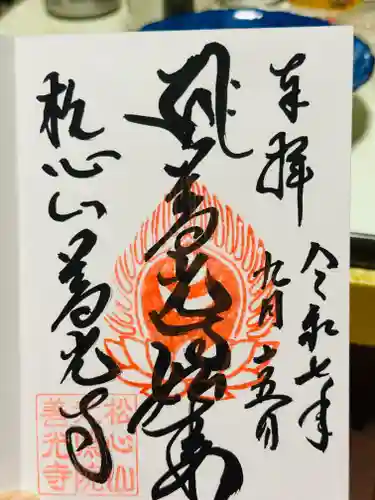 奉拝
令和七年
九月二五日
善光如来
松心山善光寺
松心山
善光寺